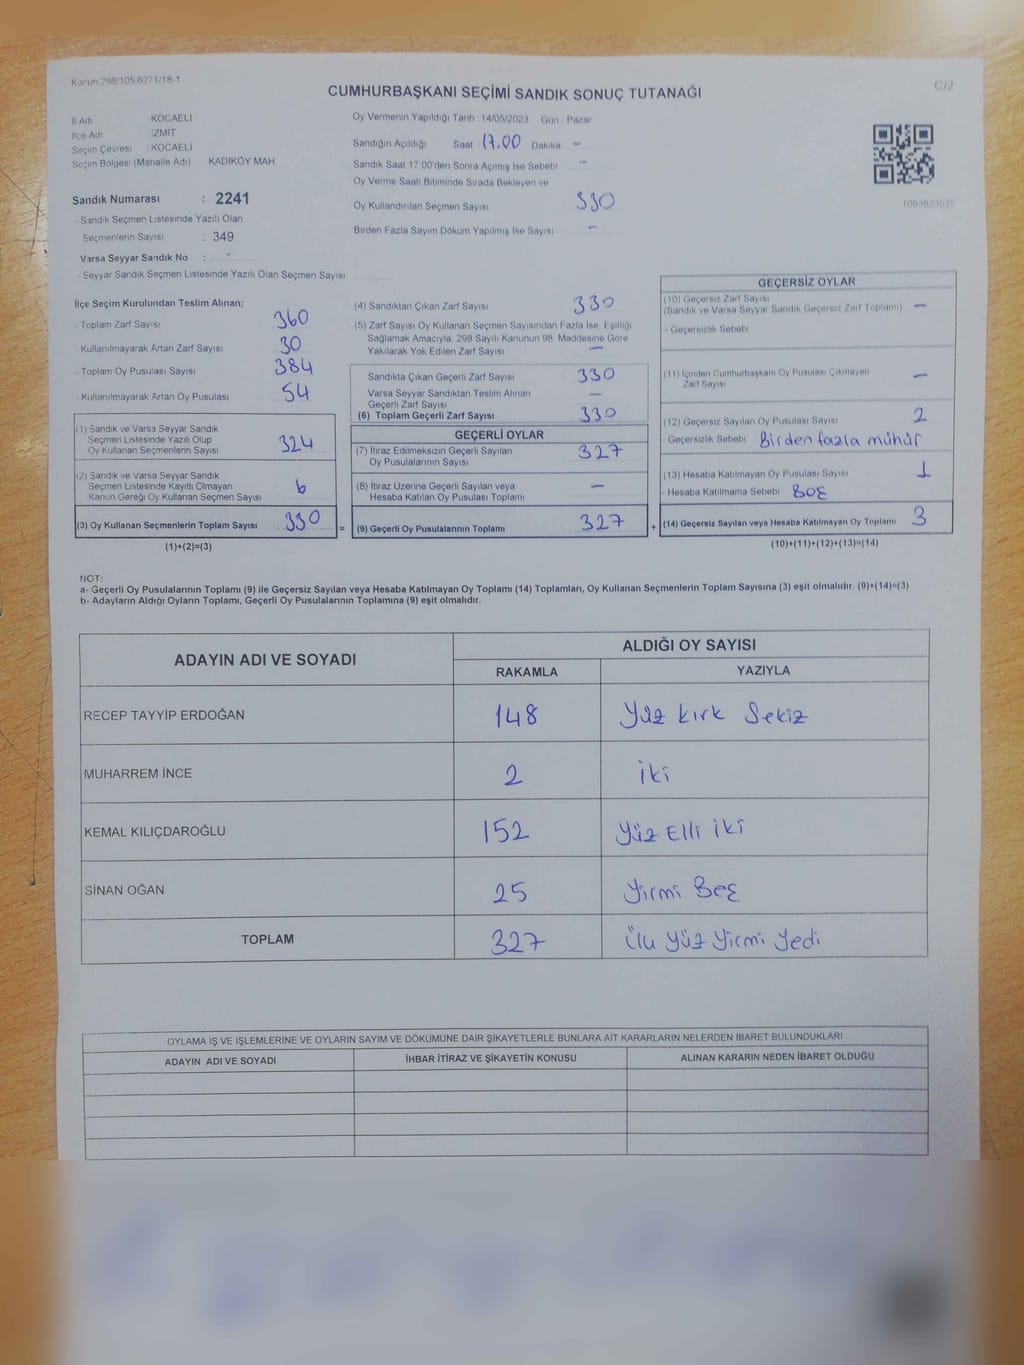 Karun 298/105.6271/18-1
C/2
CUMHURBAŞKANI SEÇİMİ SANDIK SONUÇ TUTANAĞI
İl Adı KOCAELİ
İlçe Adı İZMİT
Seçim Çevresi : KOCAELİ
Seçim Bölgesi (Mahalle Adı) KADIKÖY MAH
Sandık Numarası : 2241
- Sandık Seçmen Listesinde Yazılı Olan
Seçmenlerin Sayısı : 349
Varsa Seyyar Sandık No : -
- Seyyar Sandık Seçmen Listesinde Yazılı Olan Seçmen Sayısı
Oy Vermenin Yapıldığı Tarih : 14/05/2023 Gün : Pazar
Sandığın Açıldığı Saat 17.00 Dakika -
Sandık Saat 17.00'den Sonra Açımış İse Sebebi -
Oy Verme Saati Bitiminde Sırada Bekleyen ve
Oy Kullandırılan Seçmen Sayısı 330
Birden Fazla Sayım Döküm Yapılmış İse Sayısı -
İlçe Seçim Kurulundan Teslim Alınan;
- Toplam Zarf Sayısı 360
- Kullanılmayarak Artan Zarf Sayısı 30
- Toplam Oy Pusulası Sayısı 384
- Kullanılmayarak Artan Oy Pusulası 54
(1) Sandık ve Varsa Seyyar Sandık
Seçmen Listesinde Yazılı Olup
Oy Kullanan Seçmenlerin Sayısı 324
(2) Sandık ve Varsa Seyyar Sandık
Seçmen Listesinde Kayıtlı Olmayan
Kanun Gereği Oy Kullanan Seçmen Sayısı 6
(3) Oy Kullanan Seçmenlerin Toplam Sayısı 330 =
(1)+(2)=(3)
(4) Sandıktan Çıkan Zarf Sayısı 330
(5) Zarf Sayısı Oy Kullanan Seçmen Sayısından Fazla İse, Eşitliği
Sağlamak Amacıyla, 298 Sayılı Kanunun 98. Maddesine Göre
Yakılarak Yok Edilen Zarf Sayısı -
Sandıkta Çıkan Geçerli Zarf Sayısı 330
Varsa Seyyar Sandıktan Teslim Alınan
Geçerli Zarf Sayısı -
(6) Toplam Geçerli Zarf Sayısı 330
GEÇERLİ OYLAR
(7) İtiraz Edilmeksizin Geçerli Sayılan
Oy Pusulalarının Sayısı 327
(8) İtiraz Üzerine Geçerli Sayılan veya
Hesaba Katılan Oy Pusulası Toplamı -
(9) Geçerli Oy Pusulalarının Toplamı 327 +
GEÇERSİZ OYLAR
(10) Geçersiz Zarf Sayısı
(Sandık ve Varsa Seyyar Sandık Geçersiz Zarf Toplamı) -
- Geçersizlik Sebebi
(11) İçinden Cumhurbaşkanı Oy Pusulası Çıkmayan
Zarf Sayısı -
(12) Geçersiz Sayılan Oy Pusulası Sayısı 2
- Geçersizlik Sebebi Birden fazla mühür
(13) Hesaba Katılmayan Oy Pusulası Sayısı 1
- Hesaba Katılmama Sebebi BOŞ
(14) Geçersiz Sayılan veya Hesaba Katılmayan Oy Toplamı 3
(10)+(11)+(12)+(13)=(14)
NOT:
a- Geçerli Oy Pusulalarının Toplamı (9) ile Geçersiz Sayılan veya Hesaba Katılmayan Oy Toplamı (14) Toplamları, Oy Kullanan Seçmenlerin Toplam Sayısına (3) eşit olmalıdır. (9)+(14)=(3)
b- Adayların Aldığı Oyların Toplamı, Geçerli Oy Pusulalarının Toplamına (9) eşit olmalıdır.
ADAYIN ADI VE SOYADI ALDIĞI OY SAYISI
RAKAMLA YAZIYLA
RECEP TAYYİP ERDOĞAN 148 Yüz kırk Sekiz
MUHARREM İNCE 2 İki
KEMAL KILIÇDAROĞLU 152 Yüz Elli İki
SİNAN OĞAN 25 Yirmi Beş
TOPLAM 327 Üç Yüz Yirmi Yedi
OYLAMA İŞ VE İŞLEMLERİNE VE OYLARIN SAYIM VE DÖKÜMÜNE DAİR ŞİKAYETLERLE BUNLARA AİT KARARLARIN NELERDEN İBARET BULUNDUKLARI
ADAYIN ADI VE SOYADI İHBAR İTİRAZ VE ŞİKAYETİN KONUSU ALINAN KARARIN NEDEN İBARET OLDUĞU